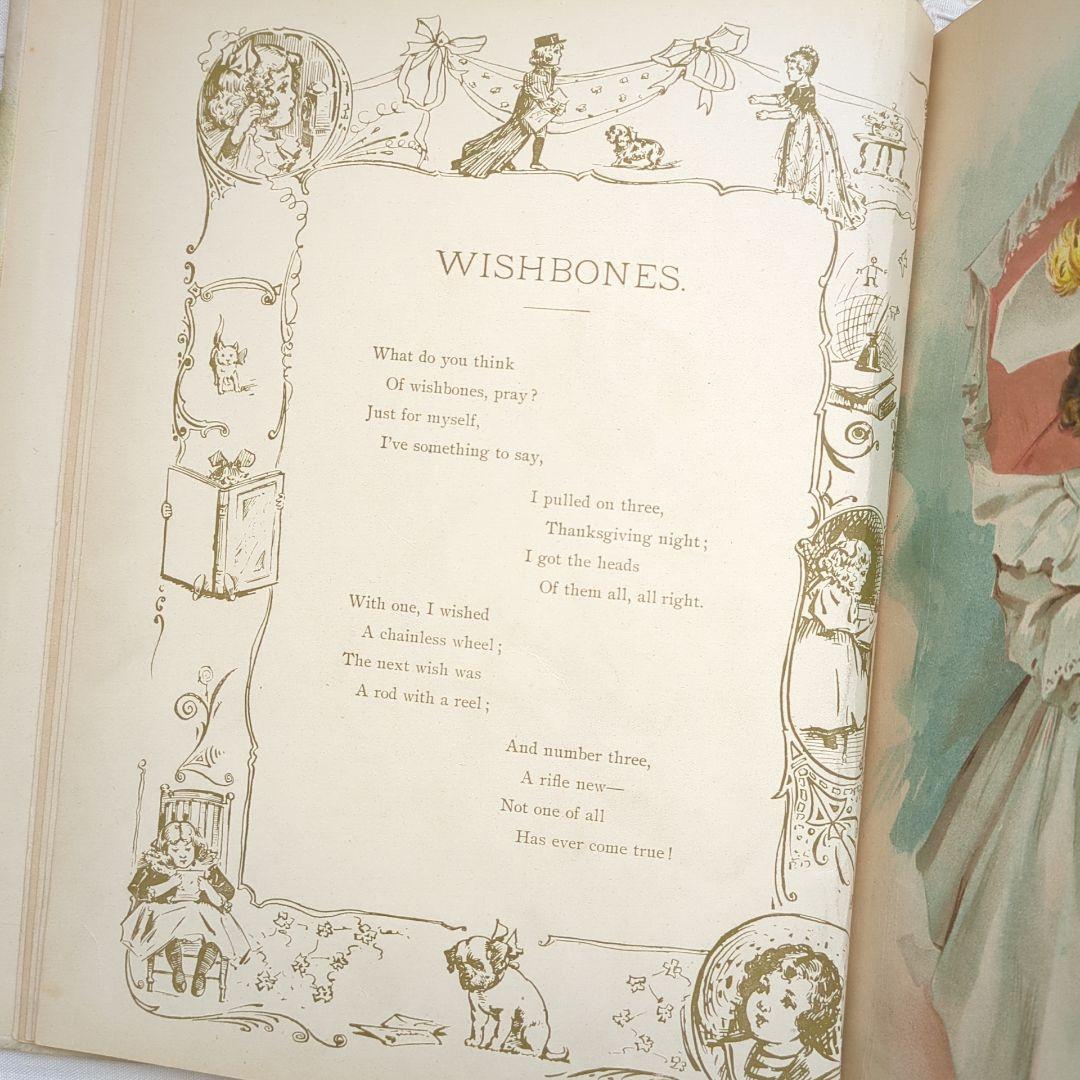 WISHBONES.
What do you think
Of wishbones, pray?
Just for myself,
I've something to say,
I pulled on three,
Thanksgiving night;
I got the heads
Of them all, all right.
With one, I wished
A chainless wheel;
The next wish was
A rod with a reel;
And number three,
A rifle new—
Not one of all
Has ever come true!